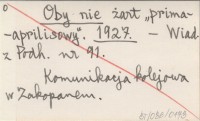 Oby nie żart „prima-
-aprilisowy". 1927. – Wiad.
z Podh. nr 91.
Komunikacja kolejowa
w Zakopanem.